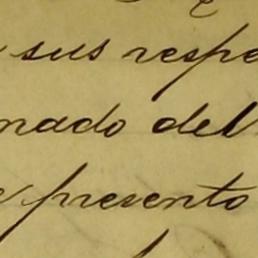 sus respe
nado del
presento